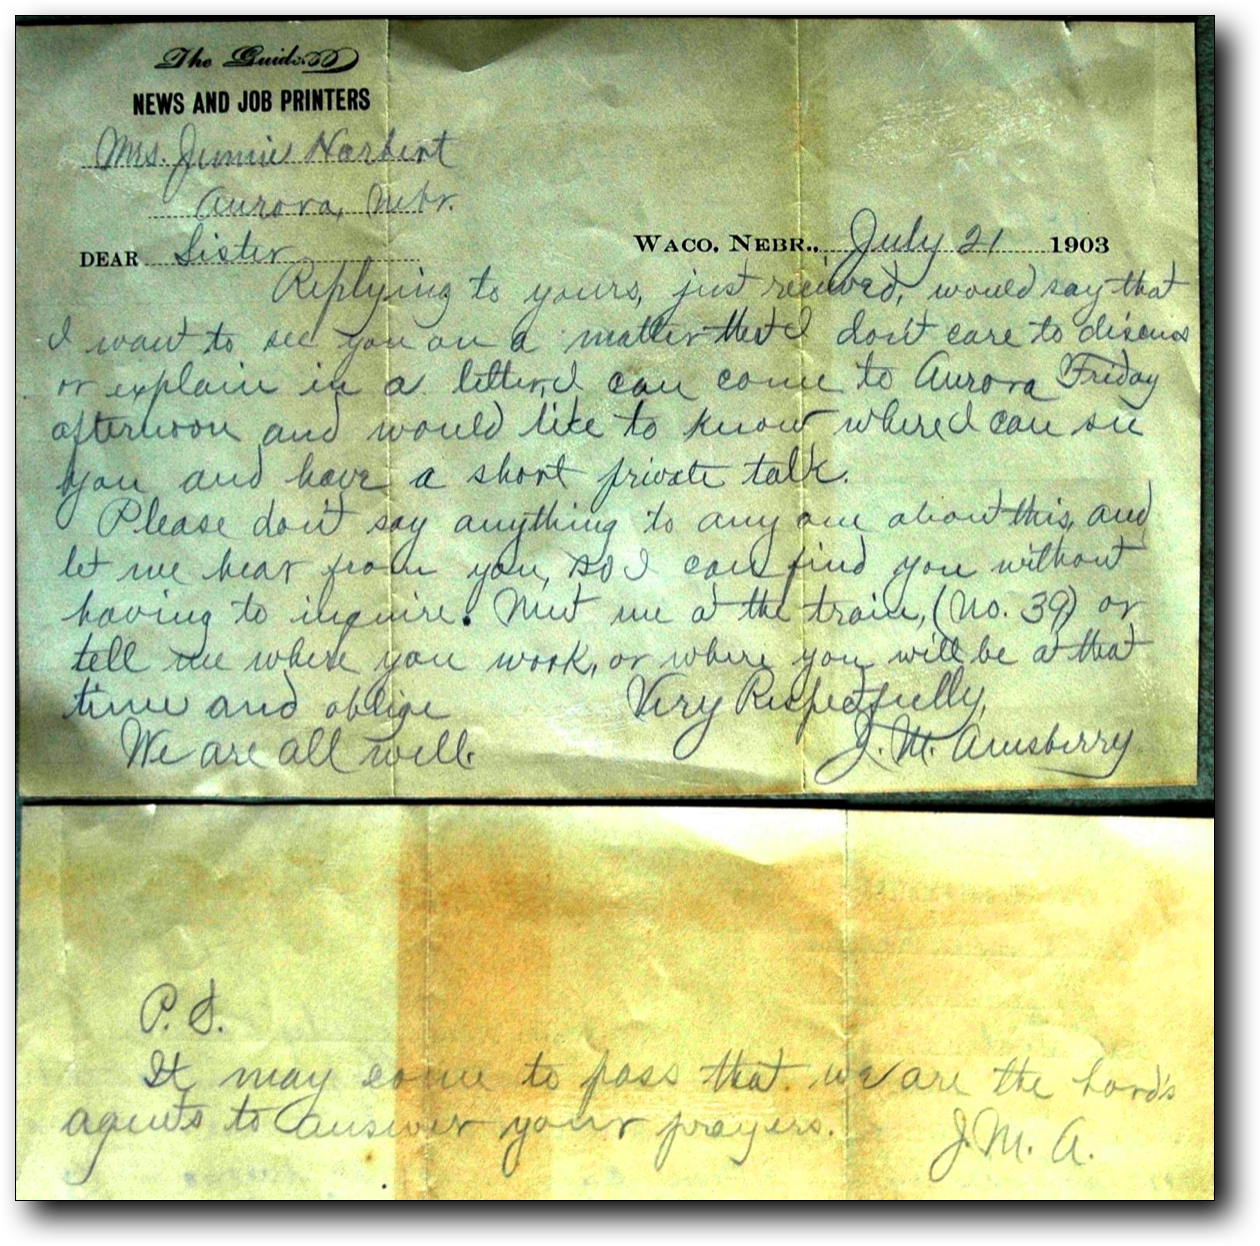 The Guide
NEWS AND JOB PRINTERS
Mrs. Jennie Harbert
Aurora, Nebr.
WACO, NEBR., July 21 1903
DEAR Sister
Replying to yours, just received, would say that
I want to see you on a matter that I don't care to discuss
or explain in a letter, I can come to Aurora Friday
afternoon and would like to know where I can see
you and have a short private talk.
Please don't say anything to any one about this, and
let me hear from you, so I can find you without
having to inquire. Meet me at the train, (No. 39) or
tell me where you work, or where you will be at that
time and oblige Very Respectfully,
We are all well. J. M. Amsberry
P. S.
It may come to pass that we are the Lord's
agents to answer your prayers. J. M. A.